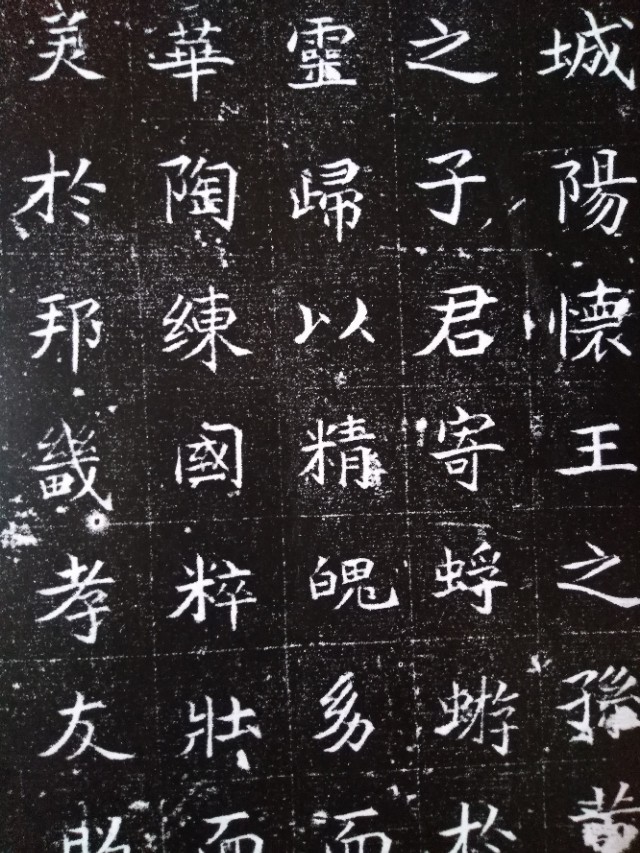 城陽懷王之孫黃
之子君寄蜉蝣於
靈歸以精魄多而
華陶練國粹壯而
美於邦畿孝友